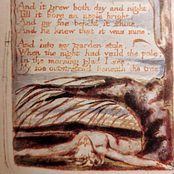 And it grew both day and night.
Till it bore an apple bright.
And my foe beheld it shine.
And he knew that it was mine.
And into my garden stole.
When the night had veild the pole
In the morning glad I see
My foe outstretchd beneath the tree